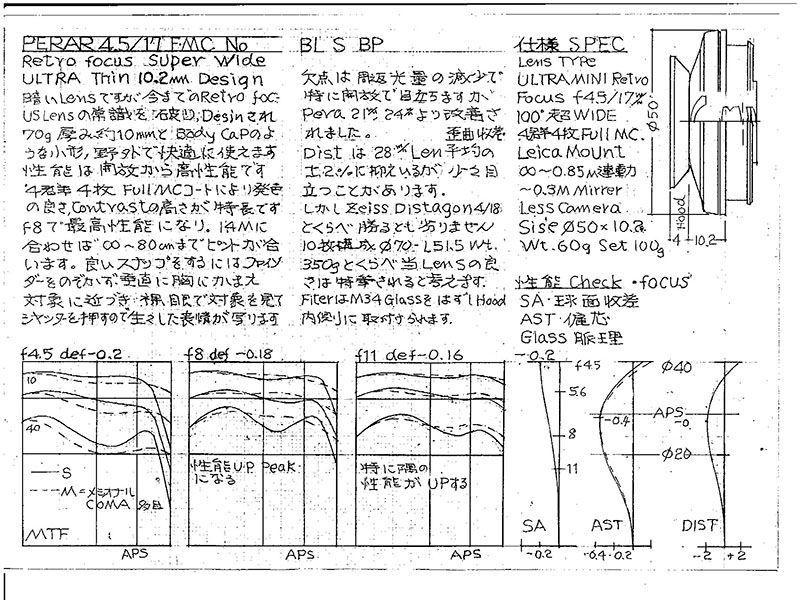 PERAR 4.5/17 FMC No
Retro focus Super Wide
ULTRA Thin 10.2mm Design
暗いLensですが今までのRetro foc
US Lensの常識を破り,Desinされ
70g 厚み約10mmと Body Capのよ
うな小形,野外で快適に使えます
性能は開放から高性能です
4群4枚 Full MCコートにより発色
の良さ,Contrastの高さが特長です
F8で最高性能になり。14Mに
合わせば∞~80cmまでピントが合
います。良いスナップをするにはファインダ
ーをのぞかず垂直に胸にかまえ
対象に近づき 裸眼で対象を見て
シャッターを押すので生々した表情が写ります
BL'S BP
欠点は周辺光量の減少で
特に開放で目立ちますが
Pera 21m/m 24m/mより改善さ
れました。 歪曲収差
Dist は 28m/m Len平均の
±2%に抑えているが 少々目
立つことがあります。
しかし Zeiss Distagon 4/18
とくらべ 勝るとも劣りません
10枚構成 Ø70-L51.5 Wt.
350gとくらべ当Lensの良
さは特筆されると考えます.
FiterはM34 Glassをはずし Hood
内側に取付けられます.
仕様 SPEC
Lens TYPE
ULTRAMINI Retro
Focus f4.5/17m/m
100°超WIDE
4群4枚 Full MC.
Leica Mount
∞~0.85M連動
~0.3M Mirrer
Less Camera
Sise Ø50×10.2
Wt. 60g Set 100g
Ø50
Hood
4 10.2
性能 Check・focus
SA・球面収差
AST・偏芯
Glass 脈理
f4.5 def-0.2
10
40
S
M=メリジオナル
COMA
MTF
APS
f8 def -0.18
性能UP Peak
になる
APS
f11 def-0.16
特に隅の
性能がUPする
APS
-0.2
f4.5
5.6
8
11
SA
-0.2
-0.4
AST
-0.4-0.2
Ø40
APS
-0.
Ø20
DIST
-2 +2